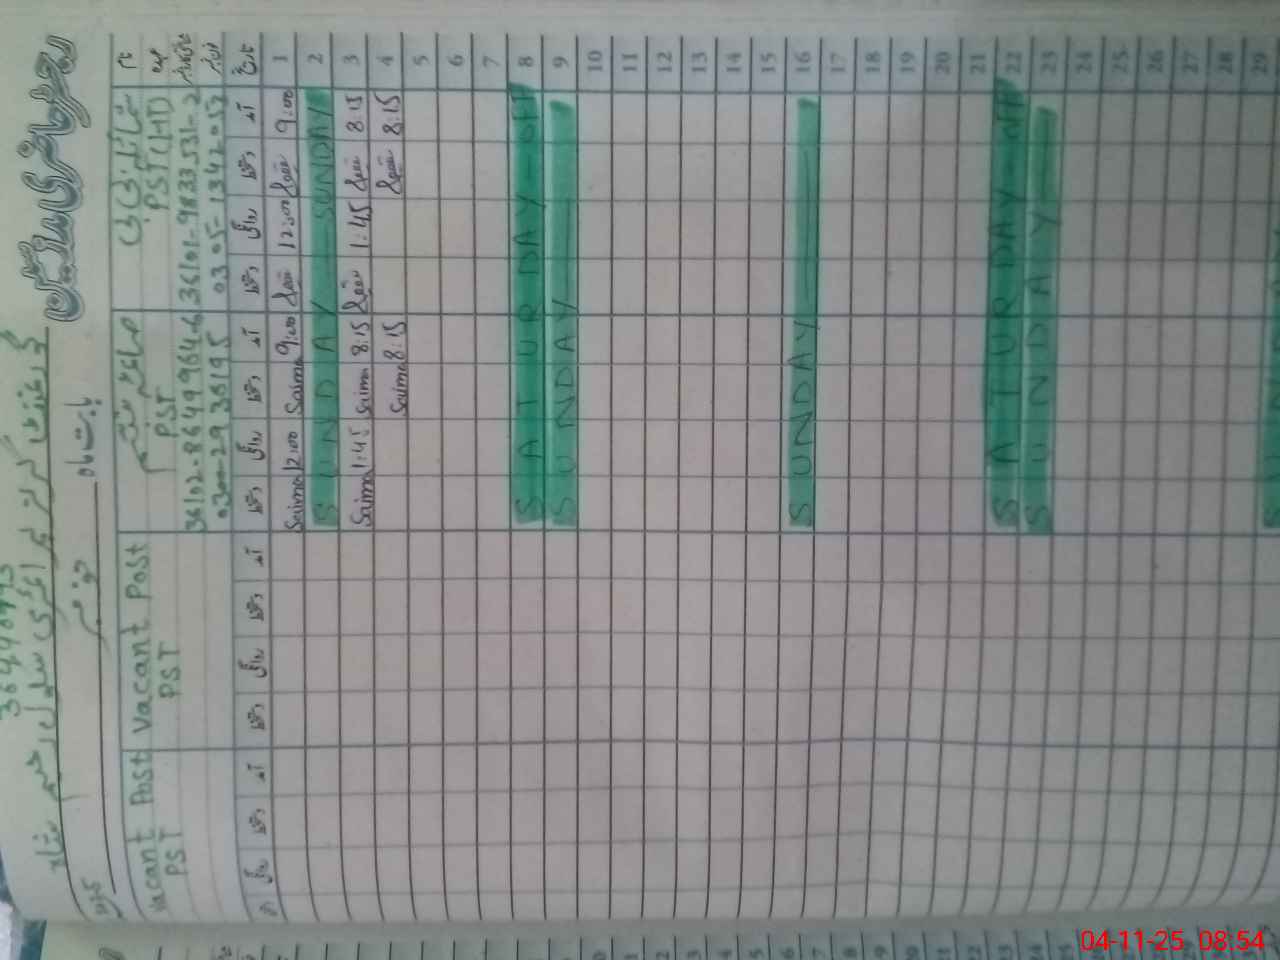 رجسٹر حاضری مدرسین
گورنمنٹ گرلز پرائمری سکول رحیم شاہ
36440493
بابت ماہ
نومبر
نام
عہدہ
شناختی کارڈ
PST (HT)
36101-9833531-2
0305-1342057
PST
36102-8649964-6
0300-2936195
Vacant Post
PST
Vacant Post
PST
تاریخ آمد دستخط روانگی دستخط آمد دستخط روانگی دستخط آمد دستخط روانگی دستخط آمد دستخط روانگی
1 9:00 12:00 9:00 Saima 12:00 Saima
2 SUNDAY SUNDAY
3 8:15 1:45 8:15 Saima 1:45 Saima
4 8:15 8:15 Saima
5
6
7
8 SATURDAY OFF
9 SUNDAY
10
11
12
13
14
15
16 SUNDAY
17
18
19
20
21
22 SATURDAY OFF
23 SUNDAY
24
25
26
27
28
29
04-11-25 08:54